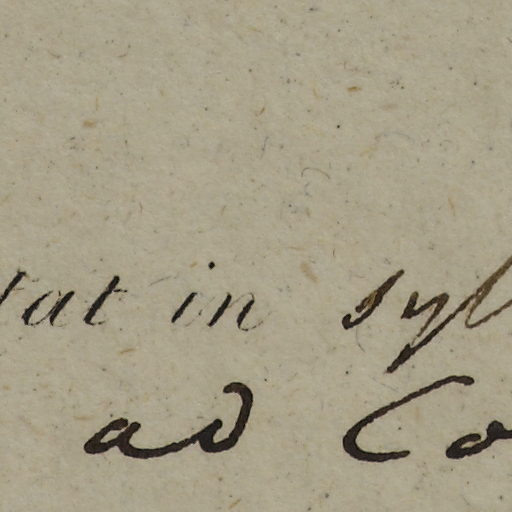 tat in syl
ad Co